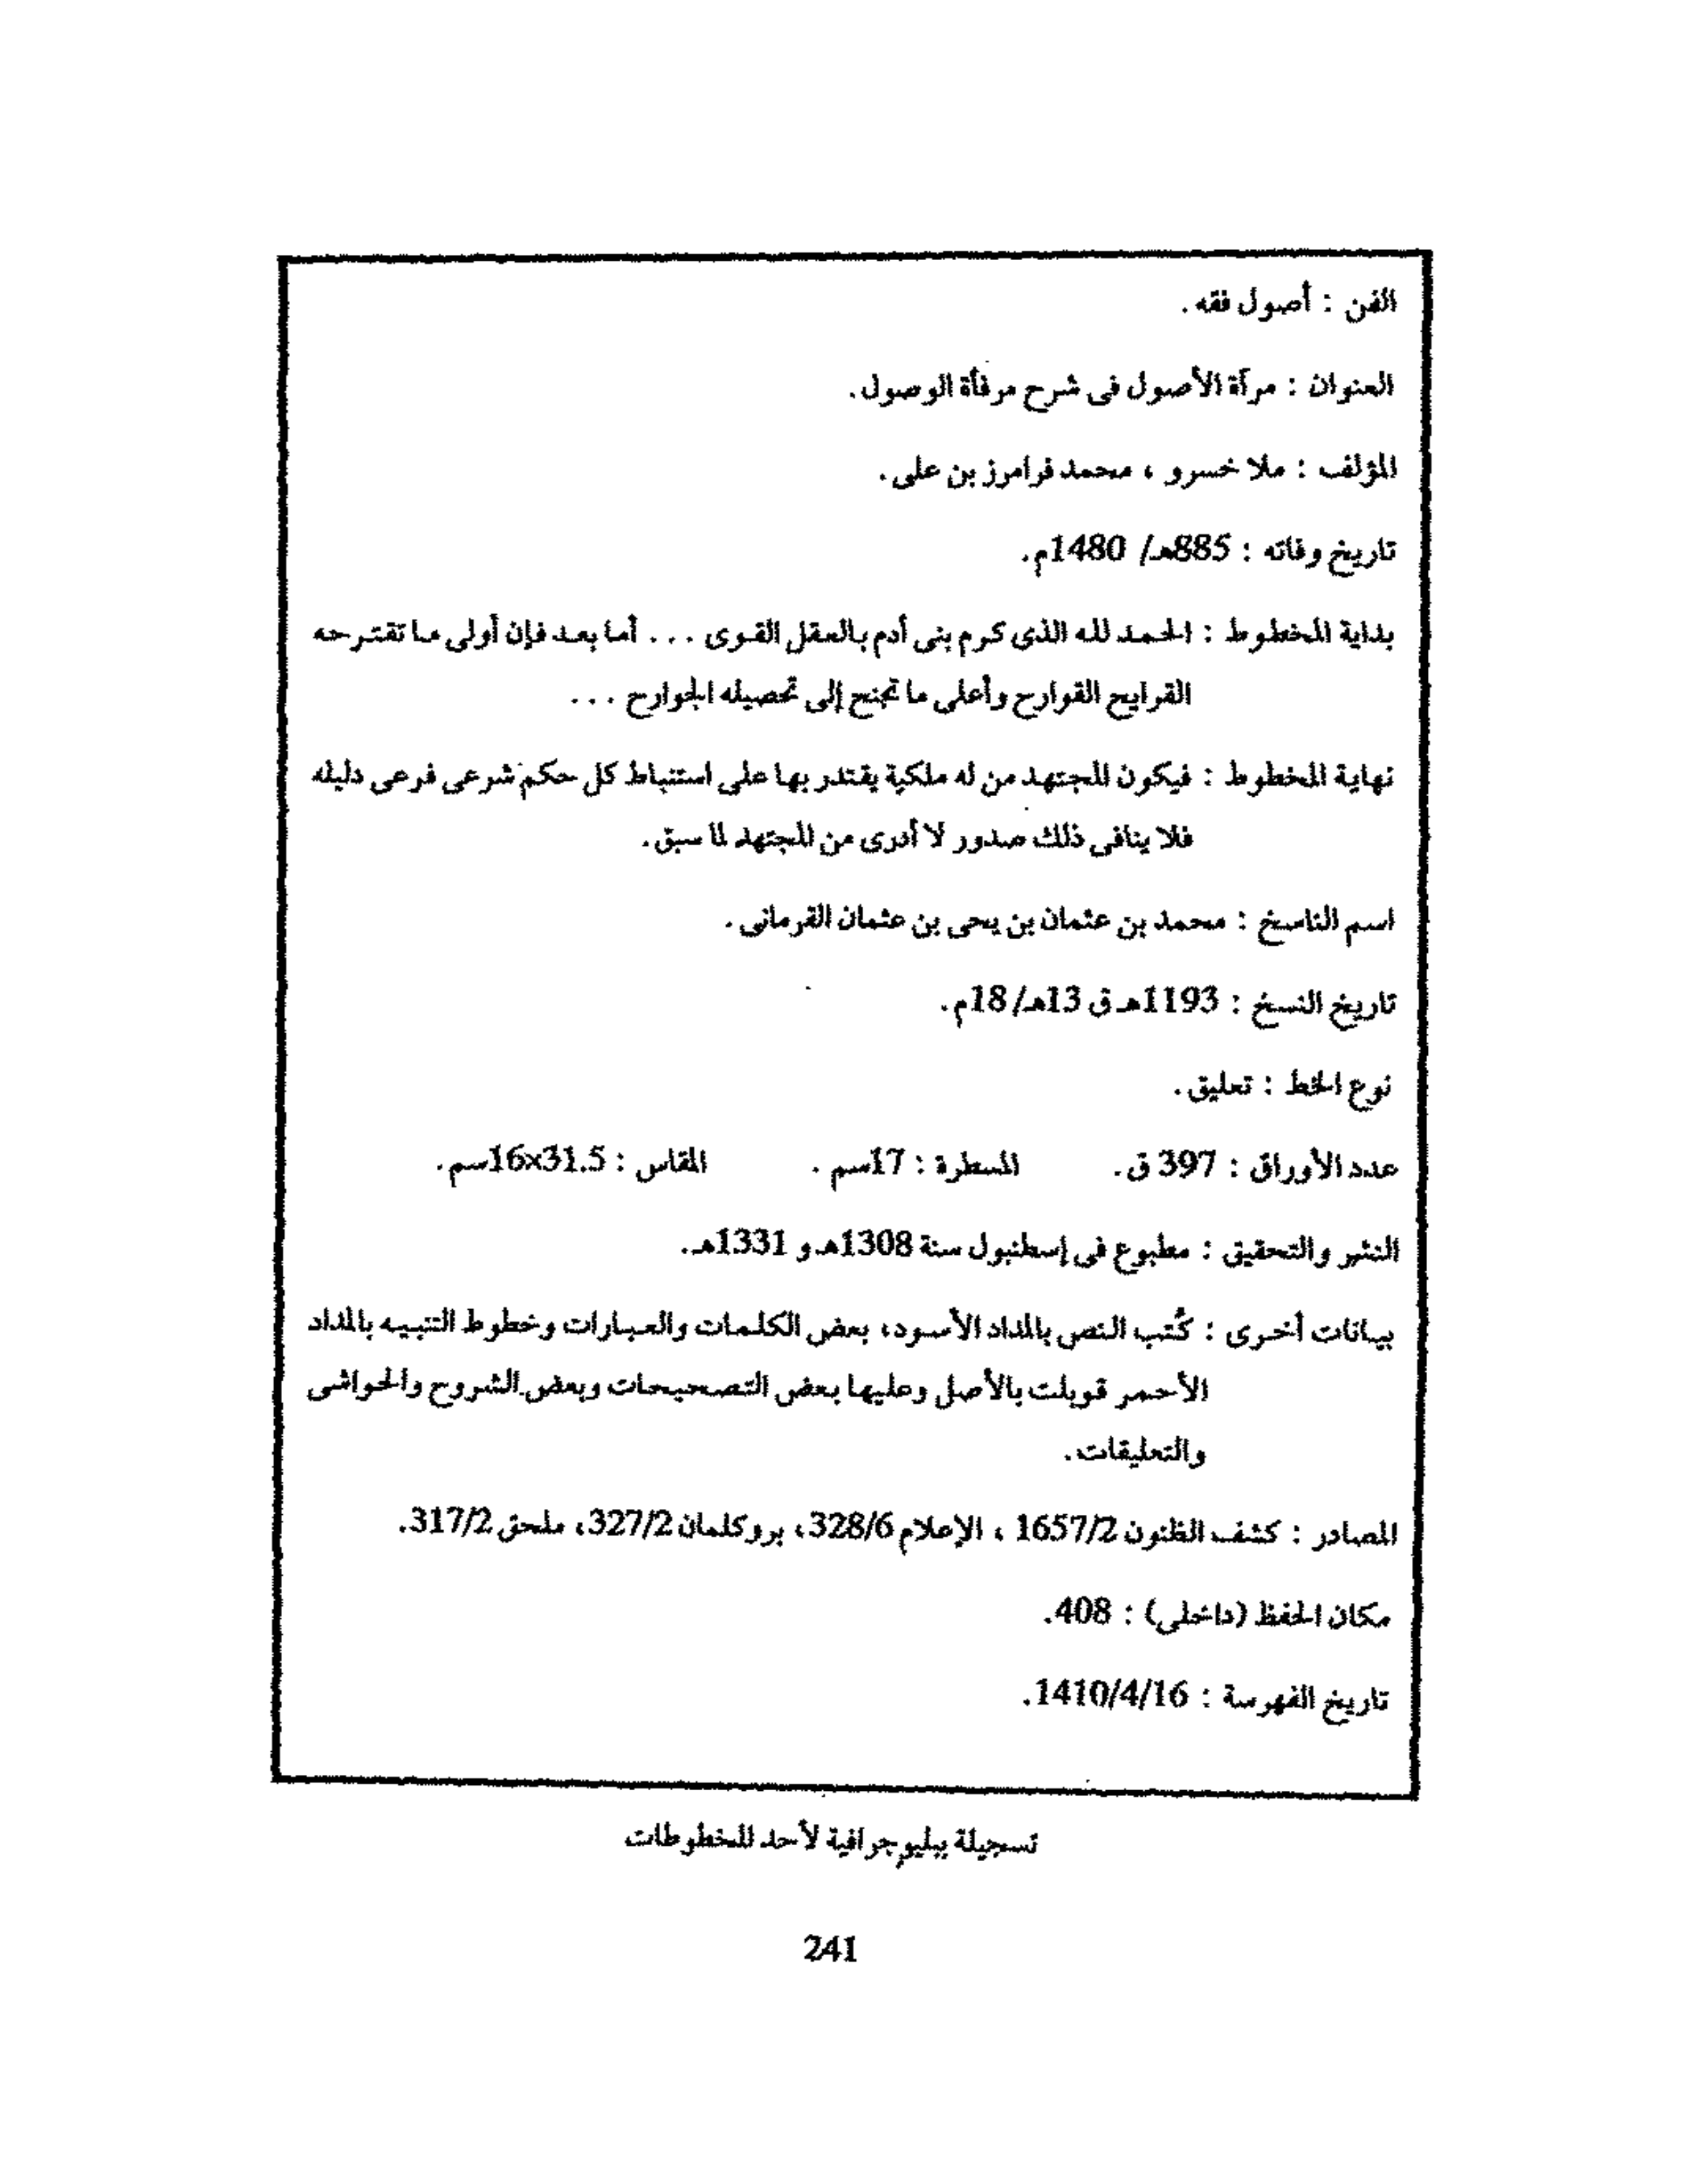 الفن : أصول فقه .
العنوان : مرآة الأصول فى شرح مرفأة الوصول.
المؤلف : ملا خسرو ، محمد فرامرز بن على.
تاريخ وفاته : 885هـ/ 1480م.
بداية المخطوط : الحمد لله الذى كرم بنى أدم بالعقل القوى . . . أما بعد فإن أولى ما تقترحه
القرايح القوارح وأعلى ما تجنح إلى تحصيله الجوارح . . .
نهاية المخطوط : فيكون المجتهد من له ملكية يقتدر بها على استنباط كل حكم شرعى فرعى دليله
فلا ينافى ذلك صدور لا أدرى من المجتهد لما سبق.
اسم الناسخ : محمد بن عثمان بن يحى بن عثمان القرمانى .
تاريخ النسخ : 1193هـ ق 13هـ/ 18م.
نوع الخط : تعليق .
عدد الأوراق : 397 ق. المسطرة : 17سم . المقاس : 16x31.5سم.
النشر والتحقيق : مطبوع فى إسطنبول سنة 1308هـ و 1331هـ.
بيانات أخرى : كُتب النص بالمداد الأسود، بعض الكلمات والعبارات وخطوط التتبيه بالمداد
الأحمر قوبلت بالأصل وعليها بعض التصحيحات وبعض الشروح والحواشى
والتعليقات.
المصادر : كشف الظنون 1657/2 ، الإعلام 328/6، بروكلمان 327/2، ملحق 317/2.
مكان الحفظ (داخلى) : 408.
تاريخ الفهرسة : 1410/4/16.
تسجيلة ببليوجرافية لأحد المخطوطات
241